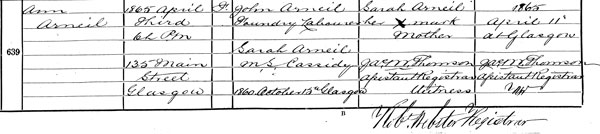 Ann 1865 April F. John Arneil Sarah Arneil 1865
Arneil Third Foundry Labourer her x mark April 11th
6h Pm Mother at Glasgow
639 Sarah Arneil
135 Main M.S. Cassidy Jas. M. Thomson Jas. M. Thomson
Street Assistant Registrar Assistant Registrar
Glasgow 1860 October Glasgow Witness
B
Rob. Webster Registrar